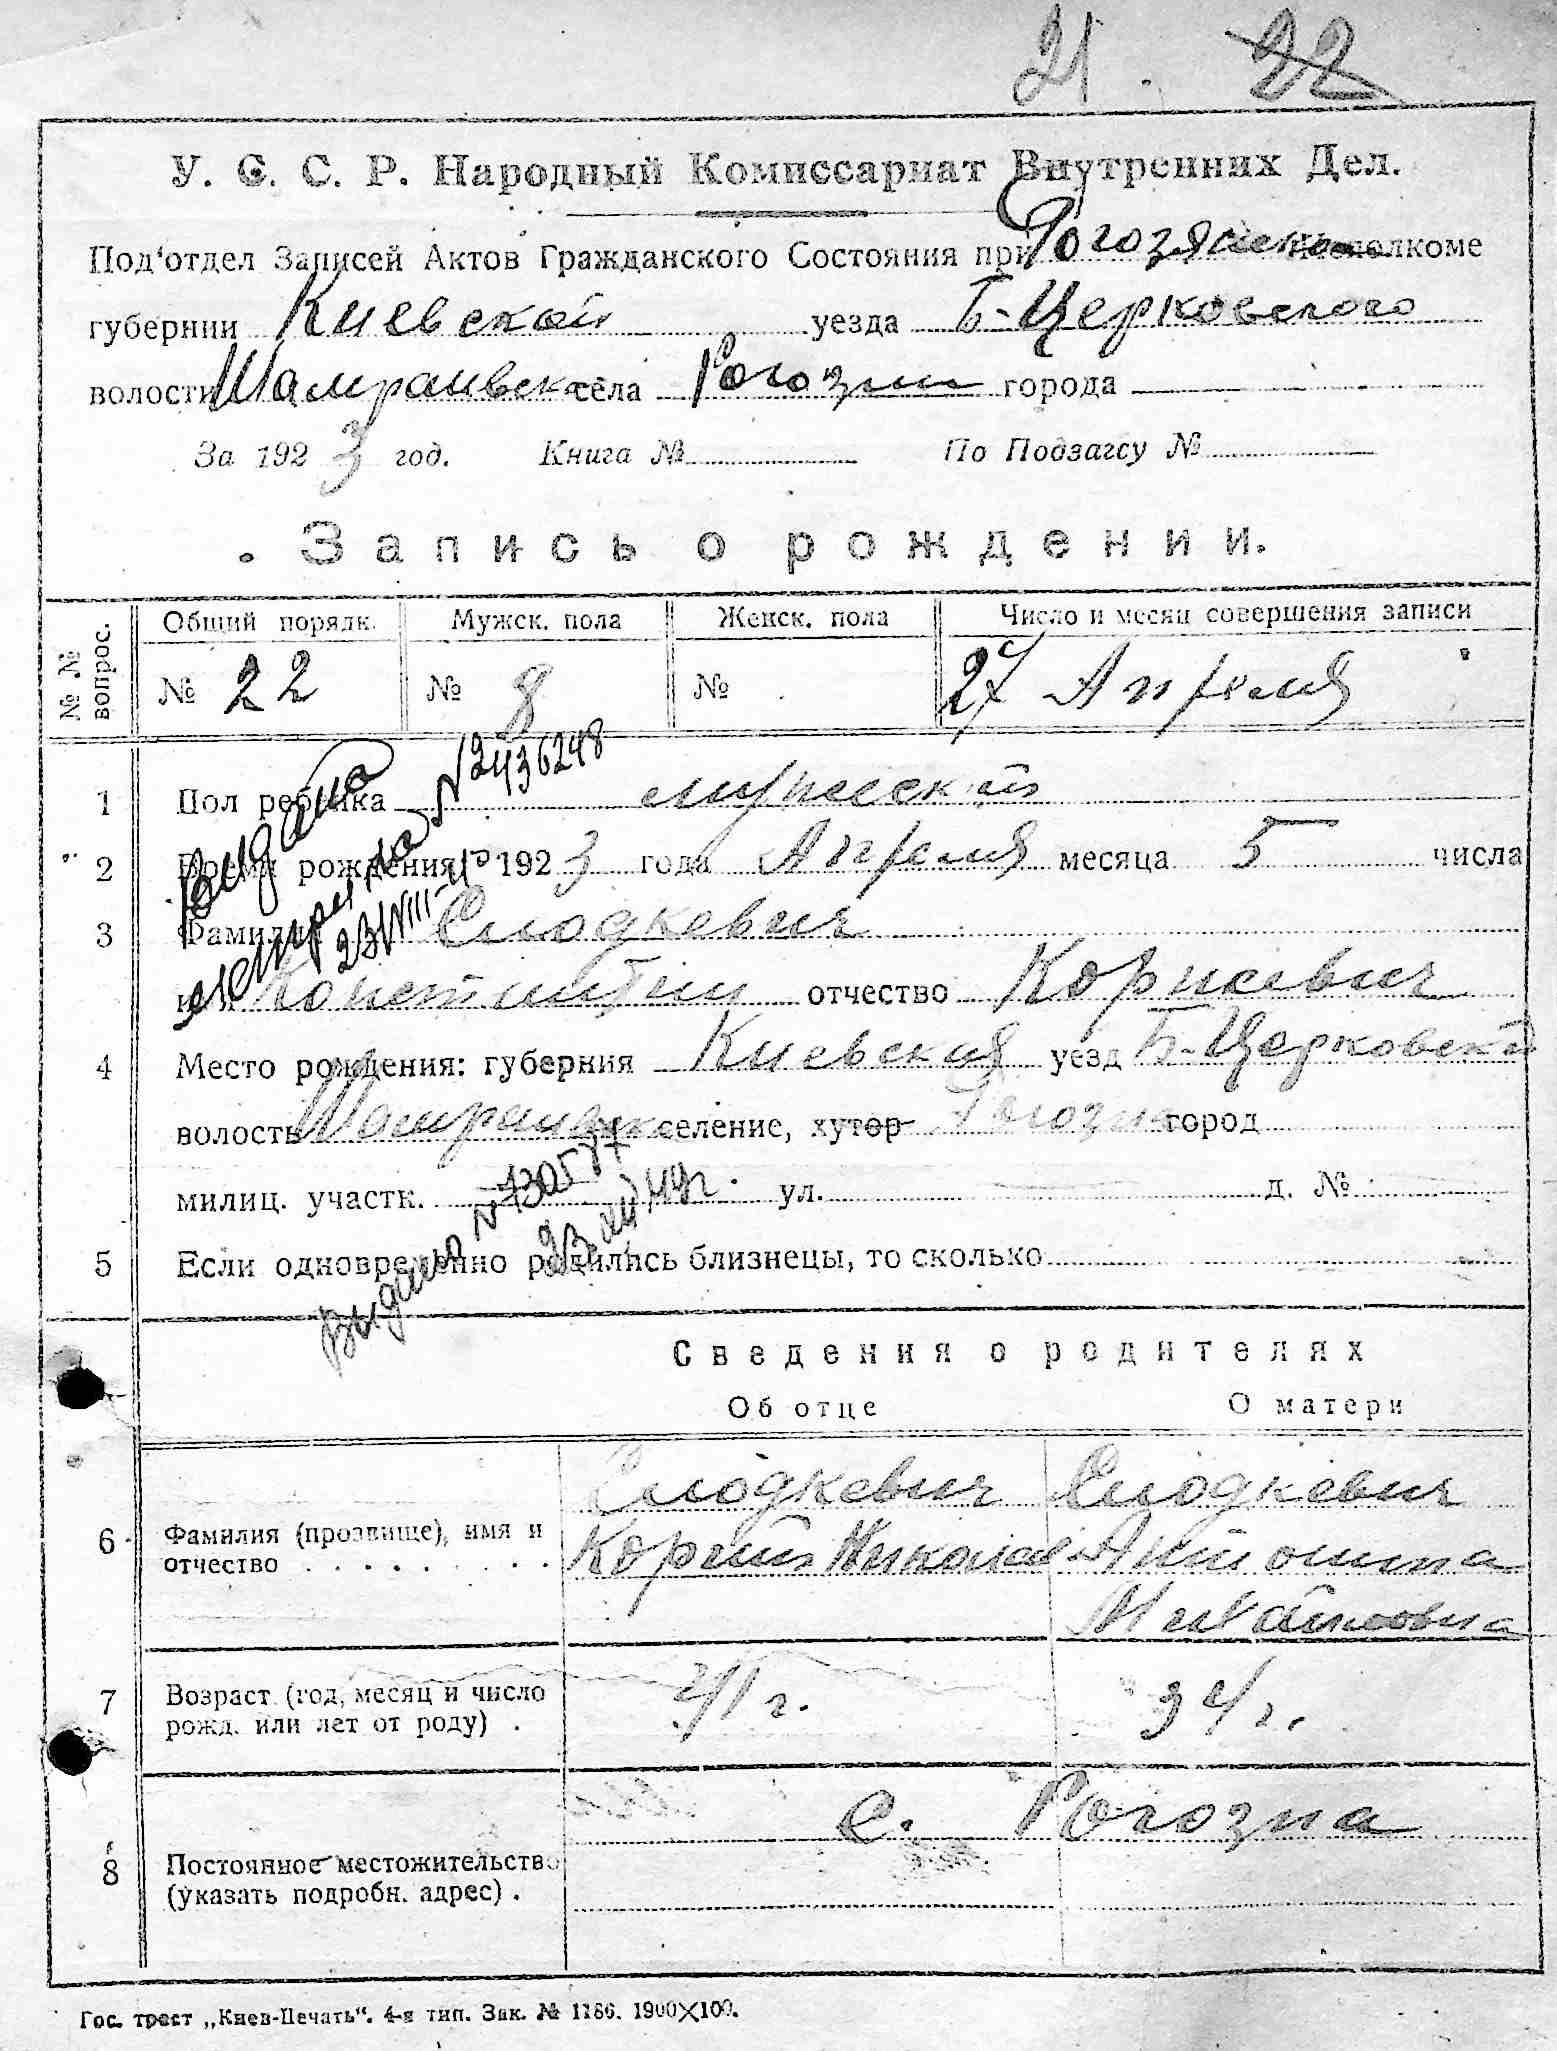 21. 22
У. С. С. Р. Народный Комиссариат Внутренних Дел.
Под'отдел Записей Актов Гражданского Состояния при Рогозянском Исполкоме
губернии Киевской уезда Б-Церковского
волости Шамраивск села Рогозни города
За 1923 год. Книга № По Подзагсу №
Запись о рождении.
№ № вопрос. Общий порядк. Мужск. пола Женск. пола Число и месяц совершения записи
№ 22 № 8 № 27 Апреля
Видано № 2436248
1 Пол ребенка мужской
2 Время рождения 1923 года Апреля месяца 5 числа
23/VIII
3 Фамилия Слодкевич
имя Константин отчество Корнеевич
4 Место рождения: губерния Киевская уезд Б-Церковский
волость Шамраивск селение, хутор Рогозна город
милиц. участк. ул. д. №
Выдано № 49г.
5 Если одновременно родились близнецы, то сколько
Сведения о родителях
Об отце О матери
Слодкевич Слодкевич
6 Фамилия (прозвище), имя и отчество Корний Николаев Антонина
7 Возраст (год, месяц и число рожд. или лет от роду) . 41 г. 34 г.
с. Рогозна
8 Постоянное местожительство (указать подробн. адрес) .
Гос. трест „Киев-Печать". 4-я тип. Зак. № 1186. 1900×100.